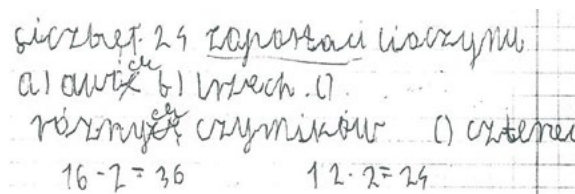 siczbęt. 24 zapostaci iloczynu
a) dwóch b) trzech. c)
różnych czynników c) czterec
16-2=36 12·2=24